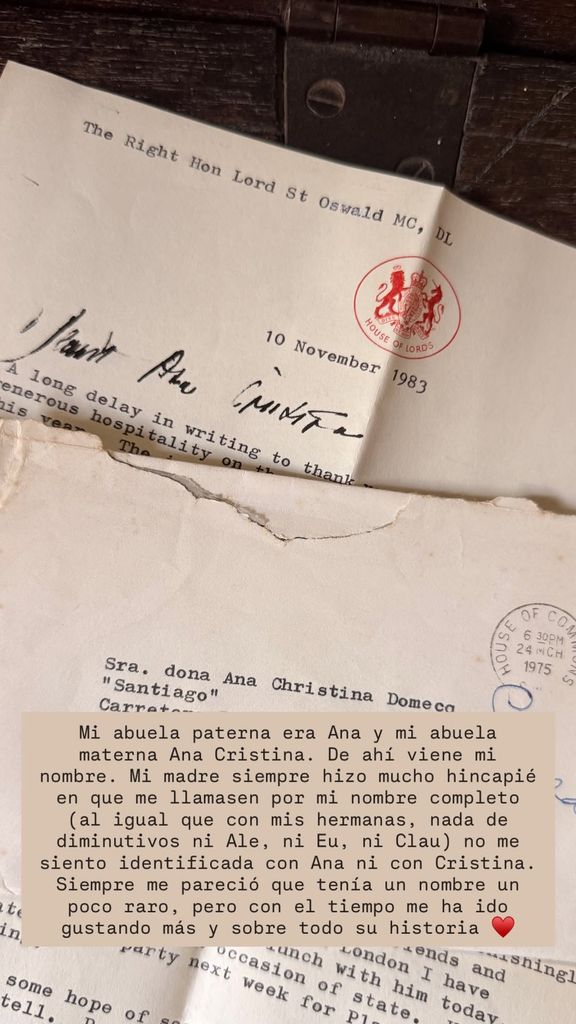 The Right Hon Lord St Oswald MC, DL
HOUSE OF LORDS
10 November 1983
Ana Cristina
A long delay in writing to thank
enerous hospitality on th
his year. The
HOUSE OF COMMONS
6 30PM
24 MCH
1975
Sra. dona Ana Christina Domecq
"Santiago"
Carrete
Mi abuela paterna era Ana y mi abuela
materna Ana Cristina. De ahí viene mi
nombre. Mi madre siempre hizo mucho hincapié
en que me llamasen por mi nombre completo
(al igual que con mis hermanas, nada de
diminutivos ni Ale, ni Eu, ni Clau) no me
siento identificada con Ana ni con Cristina.
Siempre me pareció que tenía un nombre un
poco raro, pero con el tiempo me ha ido
gustando más y sobre todo su historia ♥️
nishingl
ends and
London I have
unch with him today
occasion of state.
party next week for
some hope of
tell.